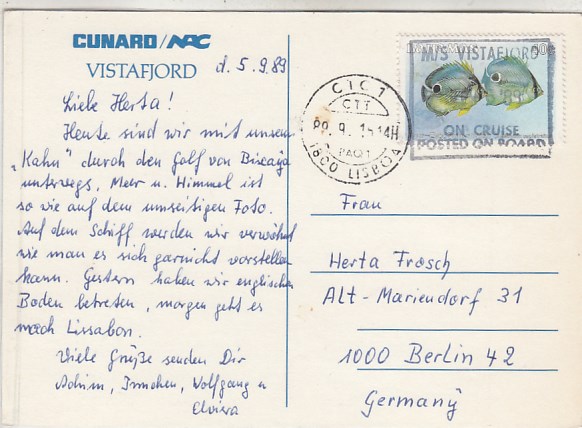 CUNARD/NAC
VISTAFJORD
d. 5.9.89
Liebe Herta!
Heute sind wir mit unserem
"Kahn" durch den Golf von Biscaya
unterwegs, Meer u. Himmel ist
so wie auf dem umseitigen Foto.
Auf dem Schiff werden wir verwöhnt
wie man es sich garnicht vorstellen
kann. Gestern haben wir englischen
Boden betreten, morgen geht es
nach Lissabon.
Viele Grüße senden Dir
Achim, Irmchen, Wolfgang u
Elvira
CTC 1
CTT
89. 9. 15 14H
PAQ 1
1600 LISBOA
M/S VISTAFJORD
ON CRUISE
POSTED ON BOARD
Frau
Herta Frosch
Alt-Mariendorf 31
1000 Berlin 42
Germany